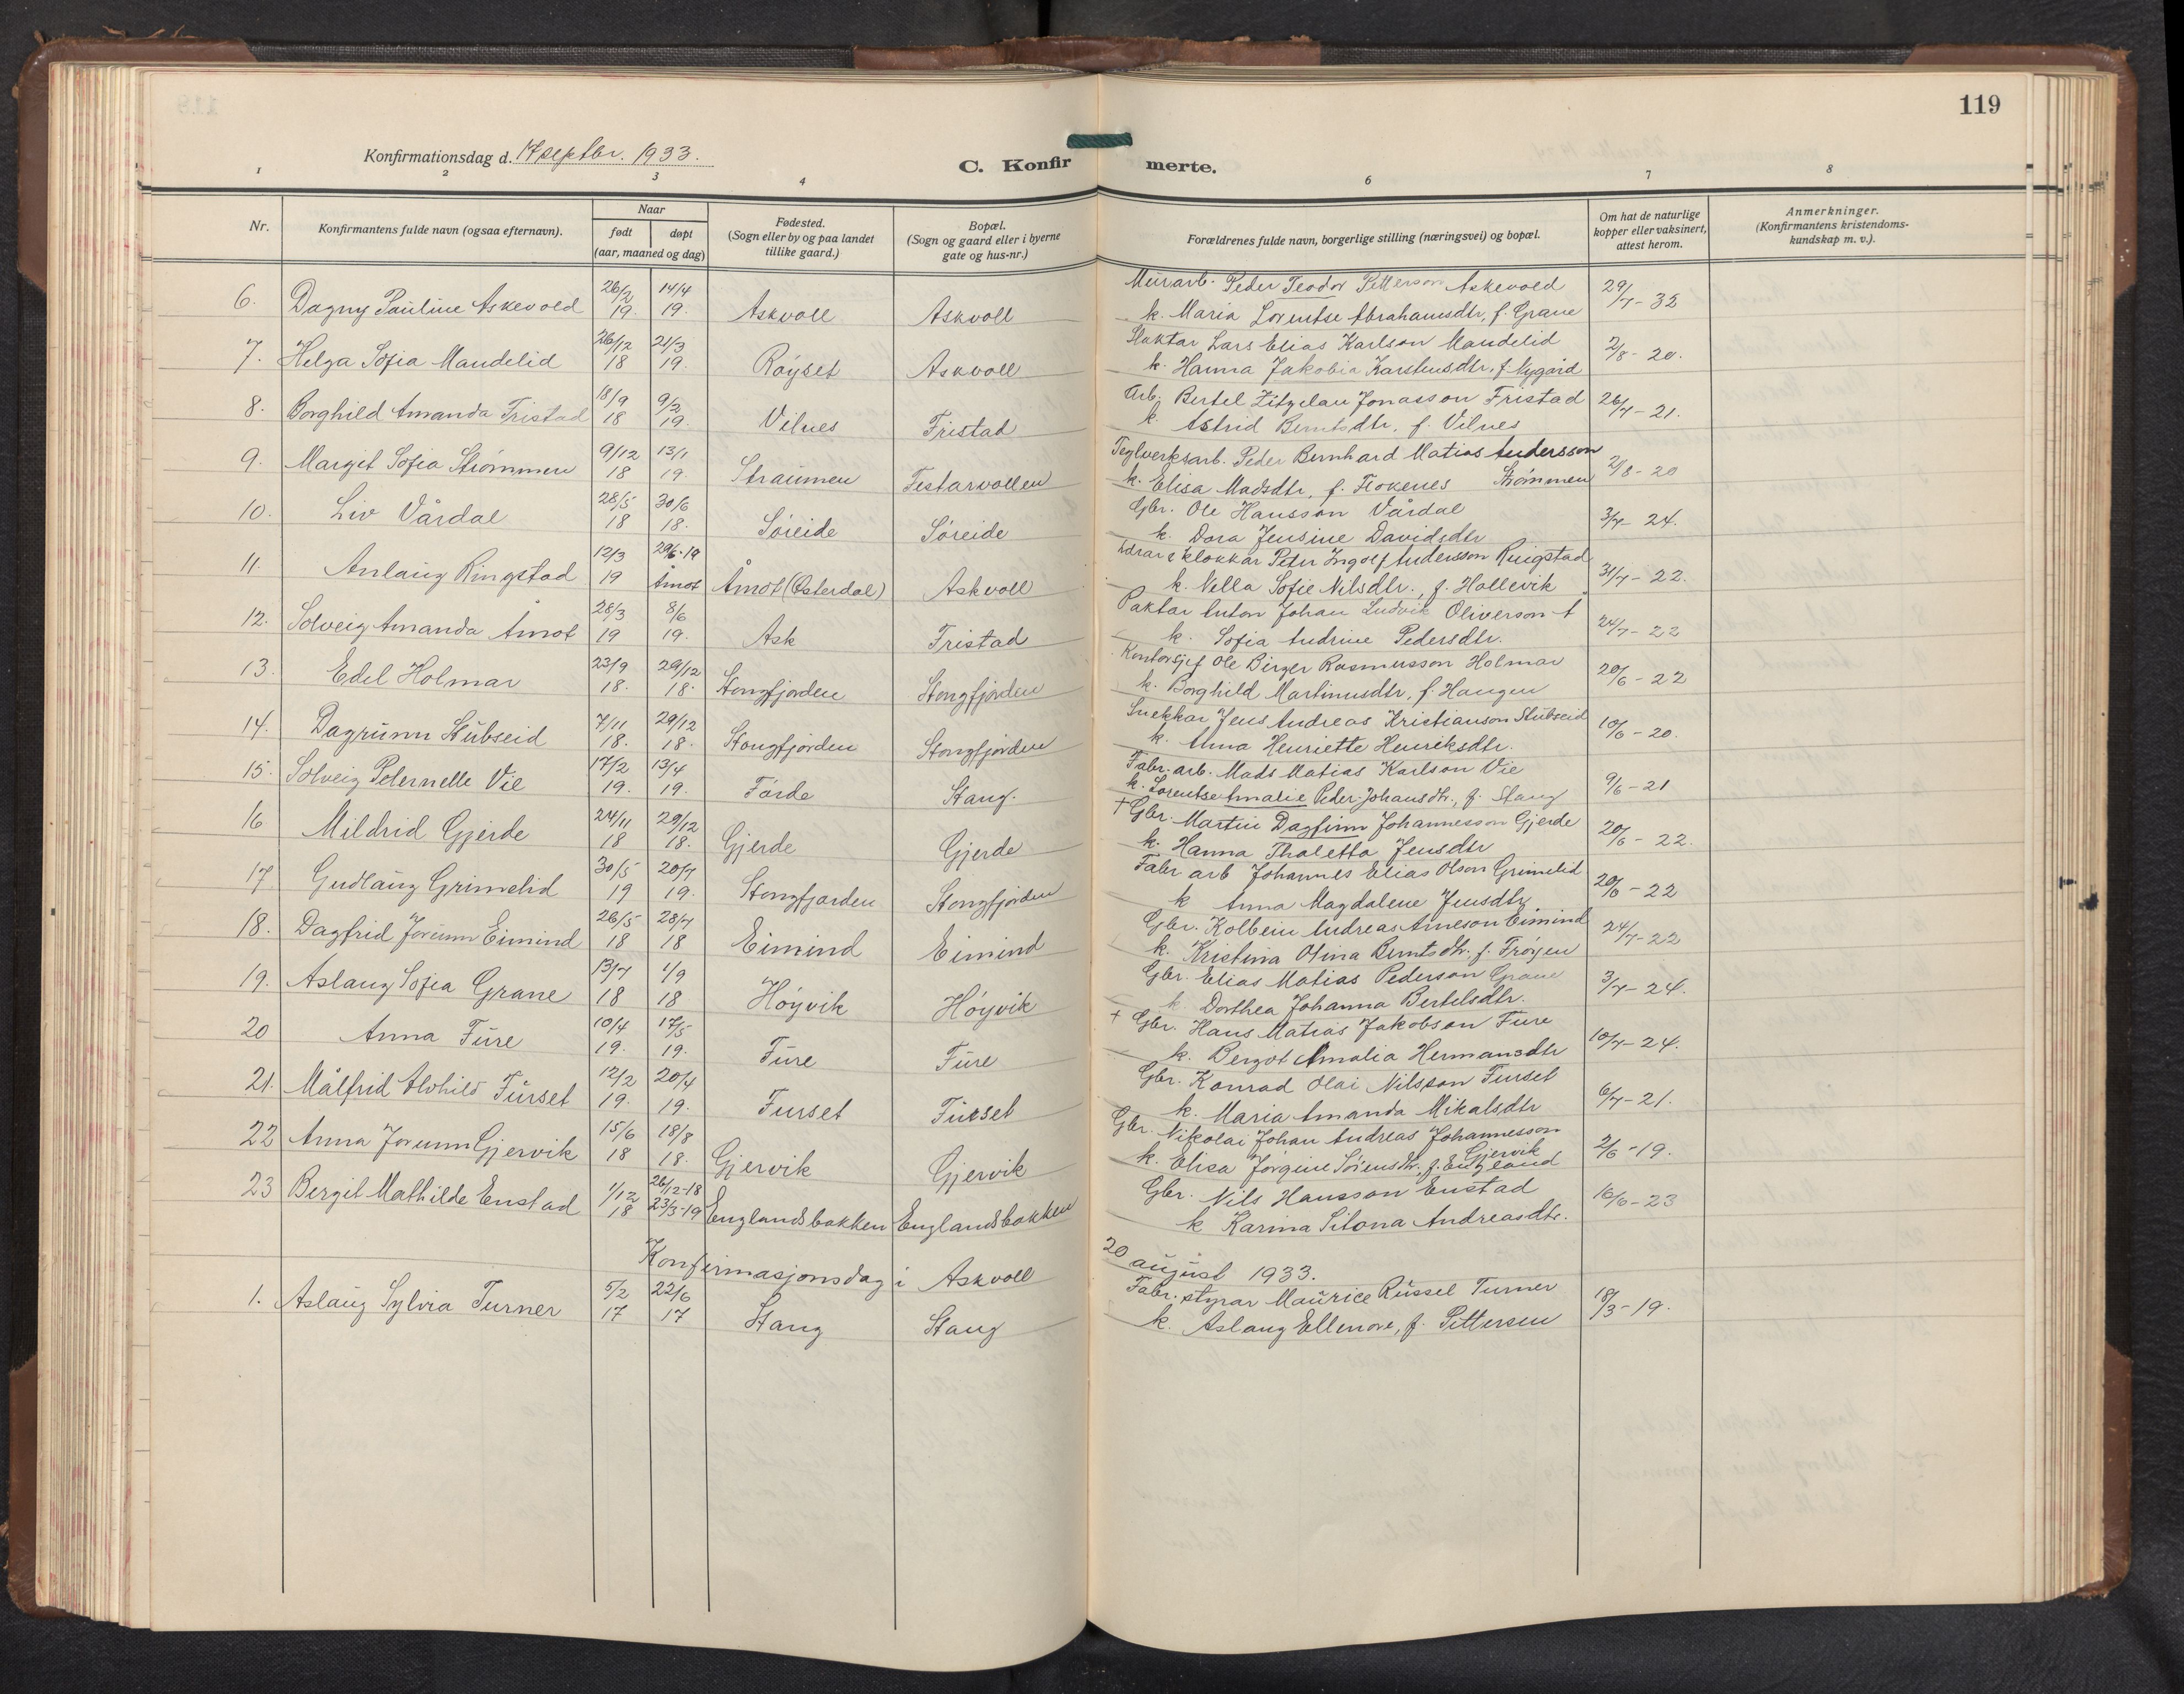 119
Konfirmationsdag d. 17 septbr. 1933.
C. Konfirmerte.
1 2 3 4 6 7 8
Nr.
Konfirmantens fulde navn (ogsaa efternavn).
Naar
født døpt
(aar, maaned og dag)
Fødested.
(Sogn eller by og paa landet
tillike gaard.)
Bopæl.
(Sogn og gaard eller i byerne
gate og hus-nr.)
Forældrenes fulde navn, borgerlige stilling (næringsvei) og bopæl.
Om hat de naturlige
kopper eller vaksinert,
attest herom.
Anmerkninger.
(Konfirmantens kristendoms-
kundskap m. v.).
6. Dagny Pauline Askevold 26/2 19. 14/4 19. Askvoll Askvoll Murarb. Peder Teodor Petterson Askevold
k. Maria Lorentse Abrahamsdtr, f. Grane 29/7-32
7. Helga Sofia Mandelid 26/12 18 21/3 19. Røyset Askvoll Slaktar Lars Elias Karlson Mandelid
k. Hanna Jakobia Karstensdtr, f. Nygård 2/8-20.
8. Borghild Amanda Fristad 18/9 18 9/2 19. Vilnes Fristad Arb. Bertel Zitzelau Jonasson Fristad
k. Astrid Berntsdtr, f. Vilnes 26/7-21.
9. Margit Sofia Strømmen 9/12 18 13/1 19. Straumen Festarvollen Teglverksarb. Peder Bernhard Matias Andersson
Strømmen
k. Elisa Madsdtr, f. Flokenes 2/8-20
10. Liv Vårdal 28/5 18 30/6 18. Søreide Søreide Gbr. Ole Hansson Vårdal
k. Dora Jensine Davidsdtr 3/7-24.
11. Anlaug Ringstad 12/3 19 29/6-19 Åmot Åmot (Østerdal) Askvoll Lærar & klokkar Peter Ingolf Andersson Ringstad
k. Nella Sofie Nilsdtr., f. Hollevik 31/7-22.
12. Solveig Amanda Åmot 28/3 19 8/6 19. Ask Fristad Paktar Anton Johan Ludvik Oliverson Å
k. Sofia Andrine Pedersdtr. 24/7-22
13. Edel Holmar 23/9 18. 29/12 18. Stongfjorden Stongfjorden Kontorsjef Ole Birger Rasmusson Holmar
k. Borghild Martinusdtr, f. Haugen 20/6-22
14. Dagrunn Stubseid 7/11 18. 29/12 18. Stongfjorden Stongfjorden Snekkar Jens Andreas Kristianson Stubseid
k. Anna Henriette Henriksdtr. 10/6-20.
15. Solveig Peternelle Vie 17/2 19. 13/4 19. Førde Stang. Fabr. arb. Mads Matias Karlson Vie
k. Lorentse Amalie Peder-Johansdtr., f. Stang 9/6-21
16 Mildrid Gjerde 24/11 18 29/12 18. Gjerde Gjerde + Gbr. Martin Dagfinn Johannesson Gjerde
k. Hanna Thaletta Jensdtr 20/6-22.
17 Gudlaug Grimelid 30/5 19 20/7 19. Stongfjorden Stongfjorden Fabr arb Johannes Elias Olson Grimelid
k Anna Magdalene Jensdtr. 20/6-22
18. Dagfrid Jorunn Eimind 26/5 18 28/7 18 Eimind Eimind Gbr. Kolbein Andreas Arneson Eimind
k. Kristina Olina Berntsdtr. f. Frøyen 24/7-22
19. Aslaug Sofia Grane 13/7 18 1/9 18 Høyvik Høyvik Gbr. Elias Matias Pederson Grane
k. Dorthea Johanna Bertelsdtr. 3/7-24.
20 Anna Fure 10/4 19. 17/5 19. Fure Fure + Gbr. Hans Matias Jakobson Fure
k. Bergot Amalia Hermansdtr 10/7-24.
21. Målfrid Alvhild Furset 12/2 19. 20/4 19. Furset Furset Gbr. Konrad Olai Nilsson Furset
k. Maria Amanda Mikalsdtr 6/7-21.
22 Anna Jorunn Gjervik 15/6 18 18/8 18. Gjervik Gjervik Gbr. Nikolai Johan Andreas Johannesson
Gjervik
k. Elisa Jørgine Sørensdtr., f. England 2/6-19.
23 Bergit Mathilde Enstad 1/12 18 26/12-18 23/3-19 Englandsbakken Englandsbakken Gbr. Nils Hansson Enstad
k Karina Silona Andreasdtr. 16/6-23
Konfirmasjonsdag i Askvoll 20 august 1933.
1. Aslaug Sylvia Turner 5/2 17 22/6 17 Stang Stang Fabr. styrar Maurice Russel Turner
k. Aslaug Ellenore, f. Pettersen 18/3-19.